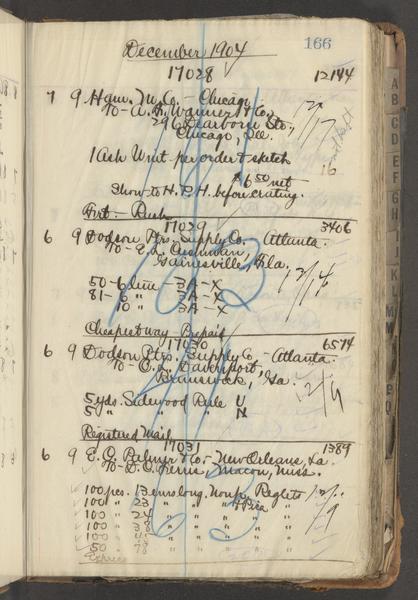 December 1904 166
17028 12144
7 9 Ham. M. Co. - Chicago
To- A. R. Co.,
296 Dearborn St.,
Chicago, Ill.
12/17
1 Ash Unit per order & sketch
16
$6 50 net
Show to H. P. H. before crating.
Frt - Rush
17029 3406
6 9 Dodson Ptrs. Supply Co. - Atlanta.
To- E. L.
Gainesville, Fla.
12/14
50 - 6 line - 3A - X
81 - 6 " 3A - X
10 " 3A - X
Cheapest way - Prepaid
17030 6574
6 9 Dodson Ptrs. Supply Co - Atlanta.
To- C. L. Davenport,
Brunswick, Ga.
12/9
5 yds. Sidewood Rule U
50 " " " N
Registered Mail
17031 1389
6 9 E. C. Palmer & Co. - New Orleans, La.
To- D. C. Macon, Miss.
100 pcs. 13 ems long. Nonp. Reglets
100 " 23 " " " "
100 " 24 " " " "
100 " 38 " " " "
100 " " " " "
50 " 78 " " " "
A
B
C
D
E
F
G
H
I
J
K
L
M